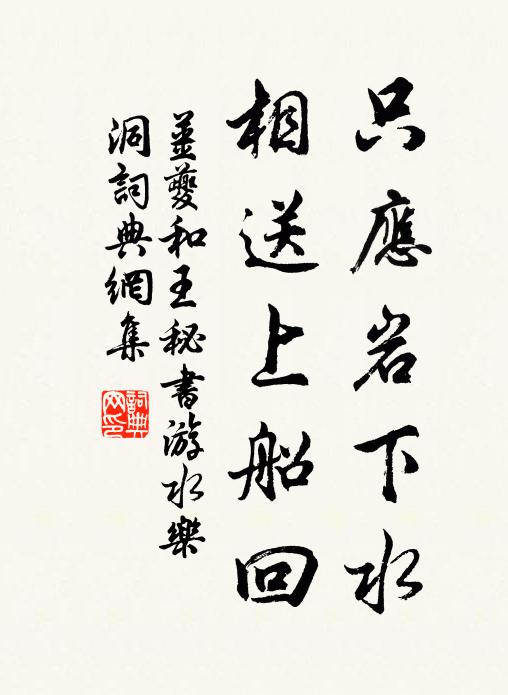 只應岩下水
相送上船回
姜夔和王秘書游水樂
洞詞典網集
詞典
网印